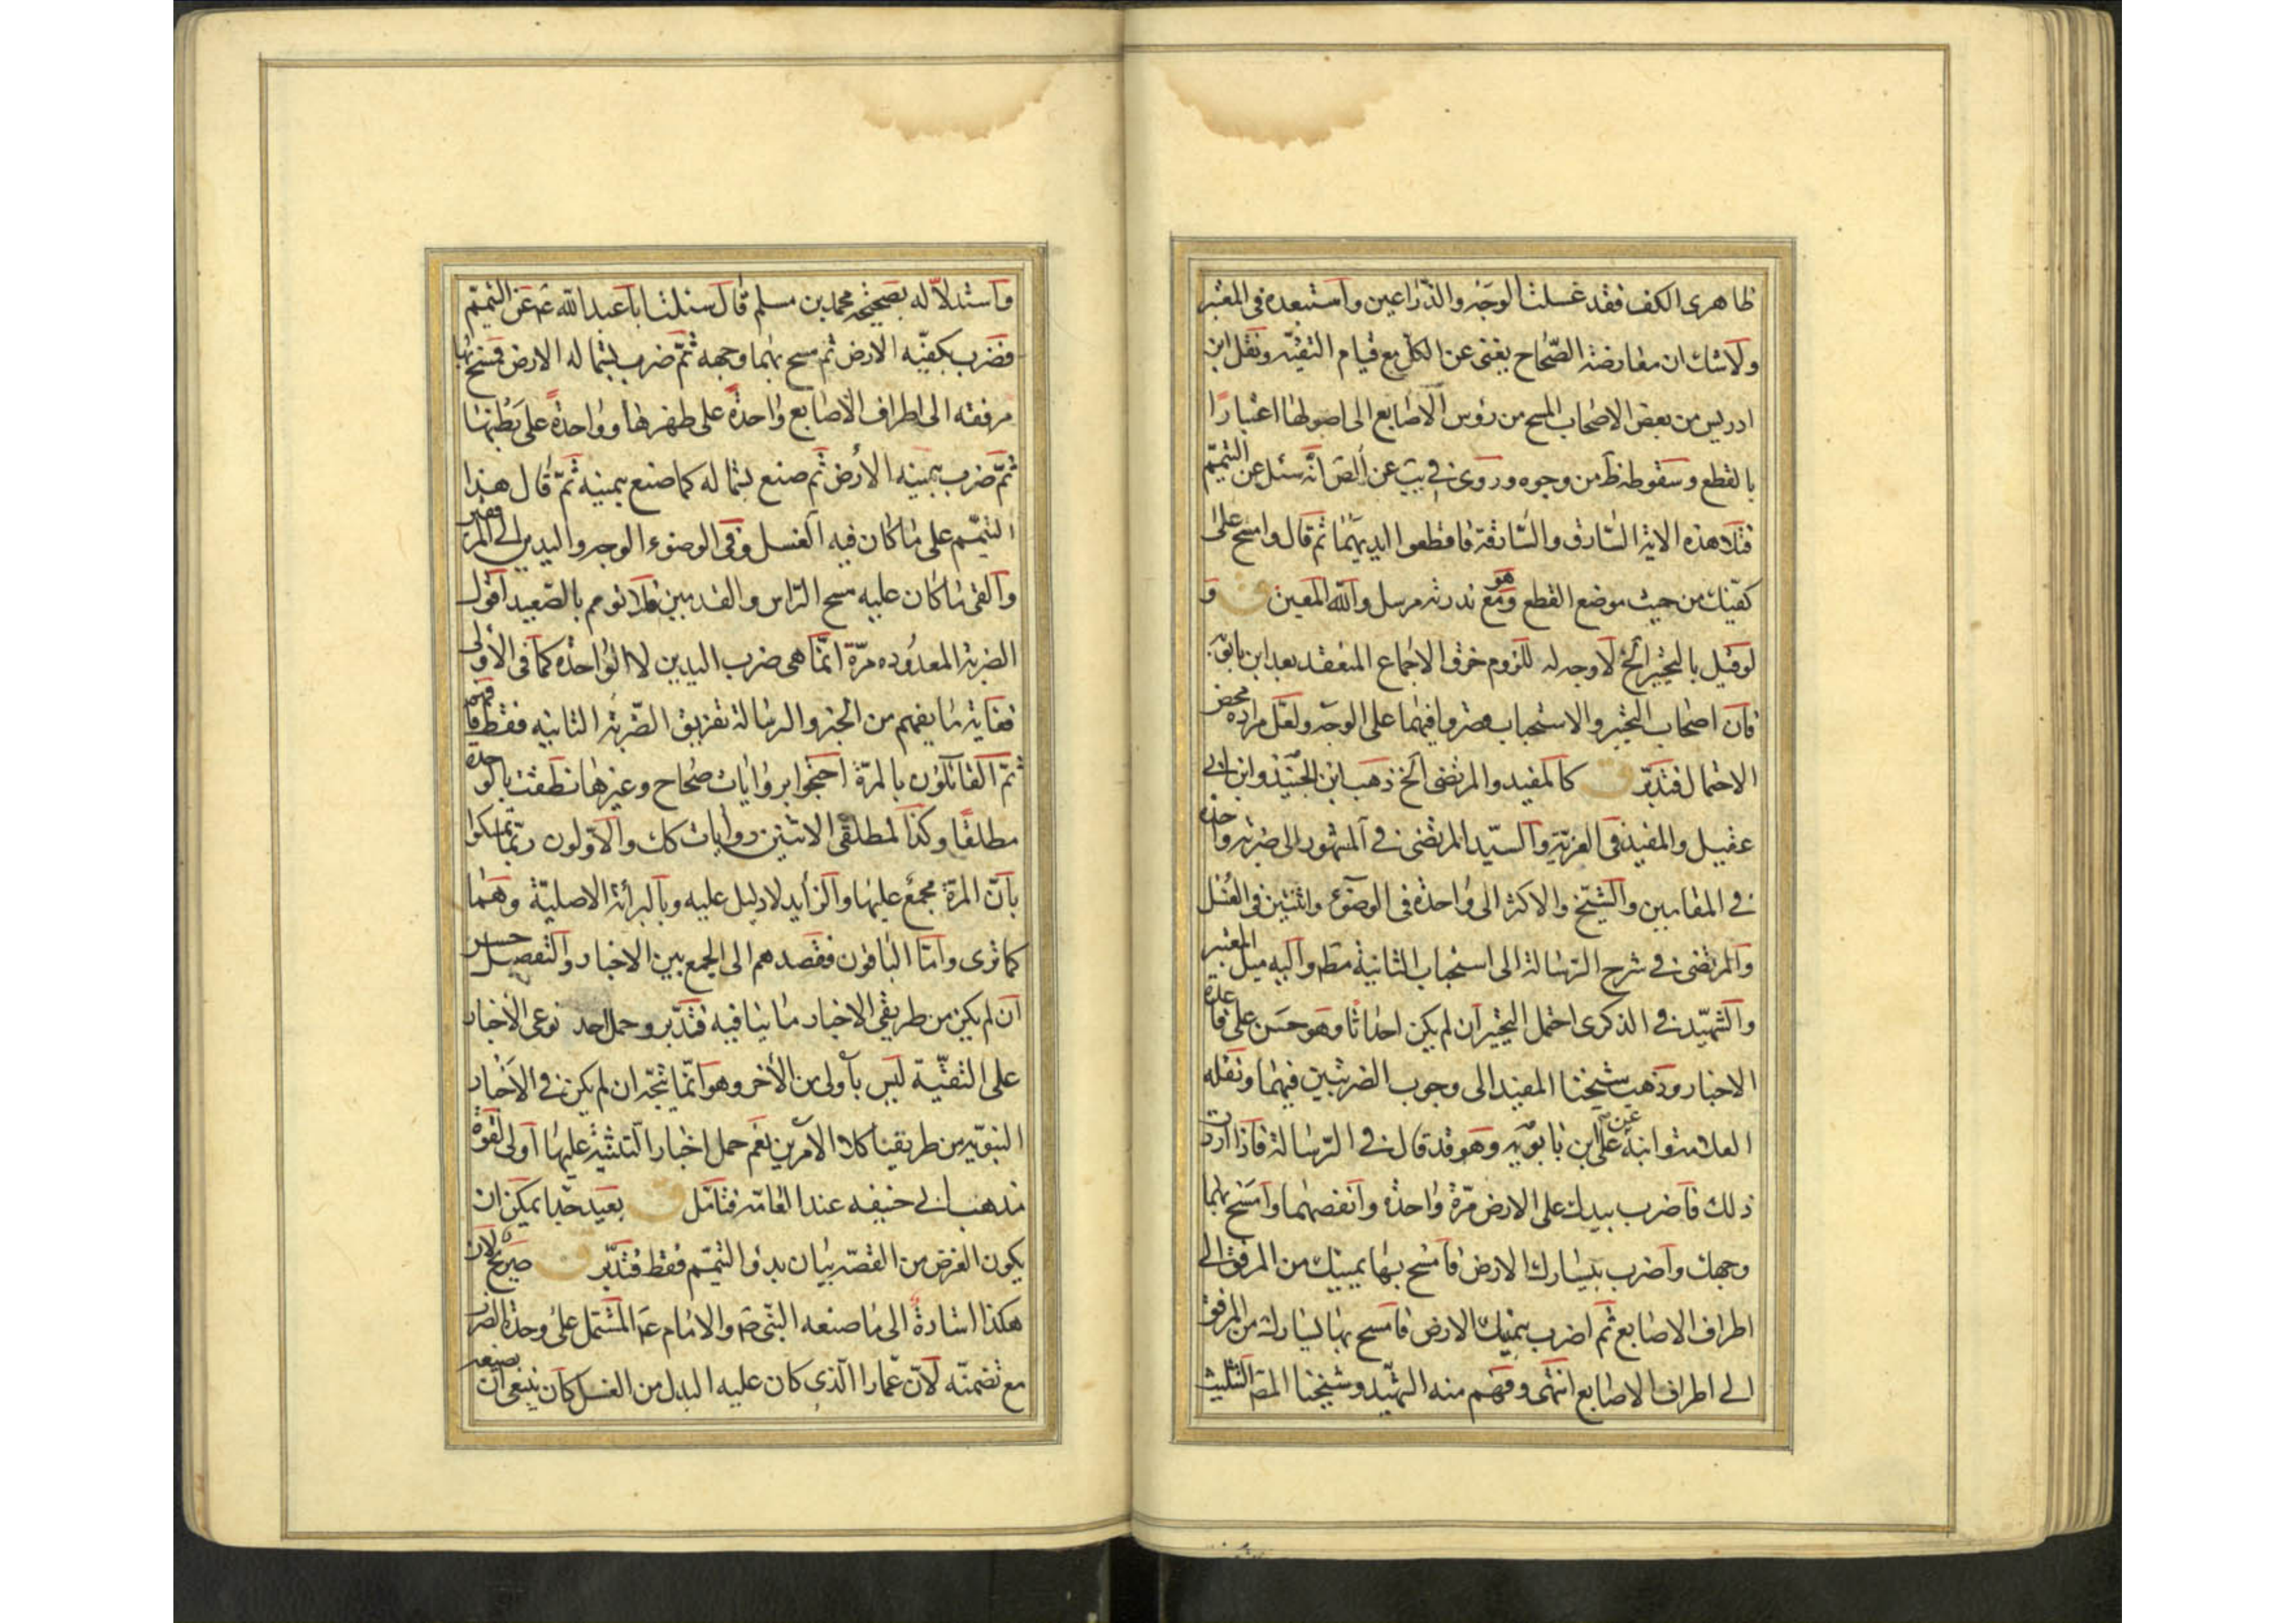 ظاهرى الكف فقد غسلت الوجه والذراعين واستبعده فى المعتبر
ولا شك ان معارضة الصحاح يغنى عن الكل مع قيام التقية ونقل ابن
ادريس من بعض الاصحاب المسح من رؤس الاصابع الى اصولها اعتبارا
بالقطع وسقوطه ظ من وجوه وروى فى يب عن الص انه سئل عن التيمم
فتلا هذه الاية السارق والسارقة فاقطعوا ايديهما ثم قال وامسح على
كفيك من حيث موضع القطع وهو مع ندرته مرسل والله المعين ق و
لو قيل بالتخيير الخ لا وجه له للزوم خرق الاجماع المنعقد بعد ابن بابويه
فان اصحاب التخيير والاستحباب فيهما على الوجه ولعل مراده محض
الاحتمال فتدبر ق كالمفيد والمرتضى الخ ذهب ابن الجنيد وابن ابى
عقيل والمفيد فى الغرية والسيد المرتضى فى المشهور الى ضربة واحدة
فى المقامين والشيخ والاكثر الى واحدة فى الوضوء واثنتين فى الغسل
والمرتضى فى شرح الرسالة الى استحباب الثانية مط واليه ميل المعتبر
والشهيد فى الذكرى احتمل التخيير ان لم يكن احداثا وهو حسن على قاعدة
الاخبار وذهب شيخنا المفيد الى وجوب الضربتين فيهما ونقله
العلامة وابنه عن على ابن بابويه وهو قد قال فى الرسالة فاذا اردت
ذلك فاضرب بيدك على الارض مرة واحدة وانفضهما وامسح بهما
وجهك واضرب بيسارك الارض فامسح بها يمينك من المرفق الى
اطراف الاصابع ثم اضرب بيمينك الارض فامسح بها يسارك من المرفق
الى اطراف الاصابع انتهى وفهم منه الشهيد وشيخنا المص التثليث
واستدلا له بصحيحة محمد بن مسلم قال سئلت ابا عبد الله ع عن التيمم
فضرب بكفيه الارض ثم مسح بهما وجهه ثم ضرب بشماله الارض فمسح بها
مرفقه الى اطراف الاصابع واحدة على ظهرها وواحدة على بطنها
ثم ضرب بيمينه الارض ثم صنع بشماله كما صنع بيمينه ثم قال هذا
التيمم على ما كان فيه الغسل وفى الوضوء الوجه واليدين الى المرفقين
والقى ما كان عليه مسح الراس والقدمين فلا تؤمم بالصعيد اقول
الضربة المعدوده مرة انما هى ضرب اليدين لا الواحدة كما فى الاولى
فغاية ما يفهم من الخبر والرسالة تفريق الضربة الثانيه فقط فافهم
ثم القائلون بالمرة احتجوا بروايات صحاح وغيرها نطقت بالوحدة
مطلقا وكذا لمطلقى الاثنين روايات كك والاولون ربما تمسكوا
بان المرة مجمع عليها والزايد لا دليل عليه وبالبرائة الاصلية وهما
كما ترى واما الباقون فقصدهم الى الجمع بين الاخبار والتفصيل حسن
ان لم يكن من طريقى الاخبار ما ينافيه فتدبر وحمل احد نوعى الاخبار
على التقية ليس باولى من الاخر وهو انما يتجه ان لم يكن فى الاخبار
النبويه من طريقينا كلا الامرين نعم حمل اخبار التثنية عليها اولى لقوة
مذهب ابى حنيفه عند العامة فتامل ق بعيد جدا يمكن ان
يكون الغرض من القصة بيان بدؤ التيمم فقط فتدبر ق صريح لان
هكذا اشارة الى ما صنعه النبى ص والامام ع المشتمل على وحدة الضرب
مع تضمنه لان عمارا الذى كان عليه البدل من الغسل كان ينبغى ان يصنعه